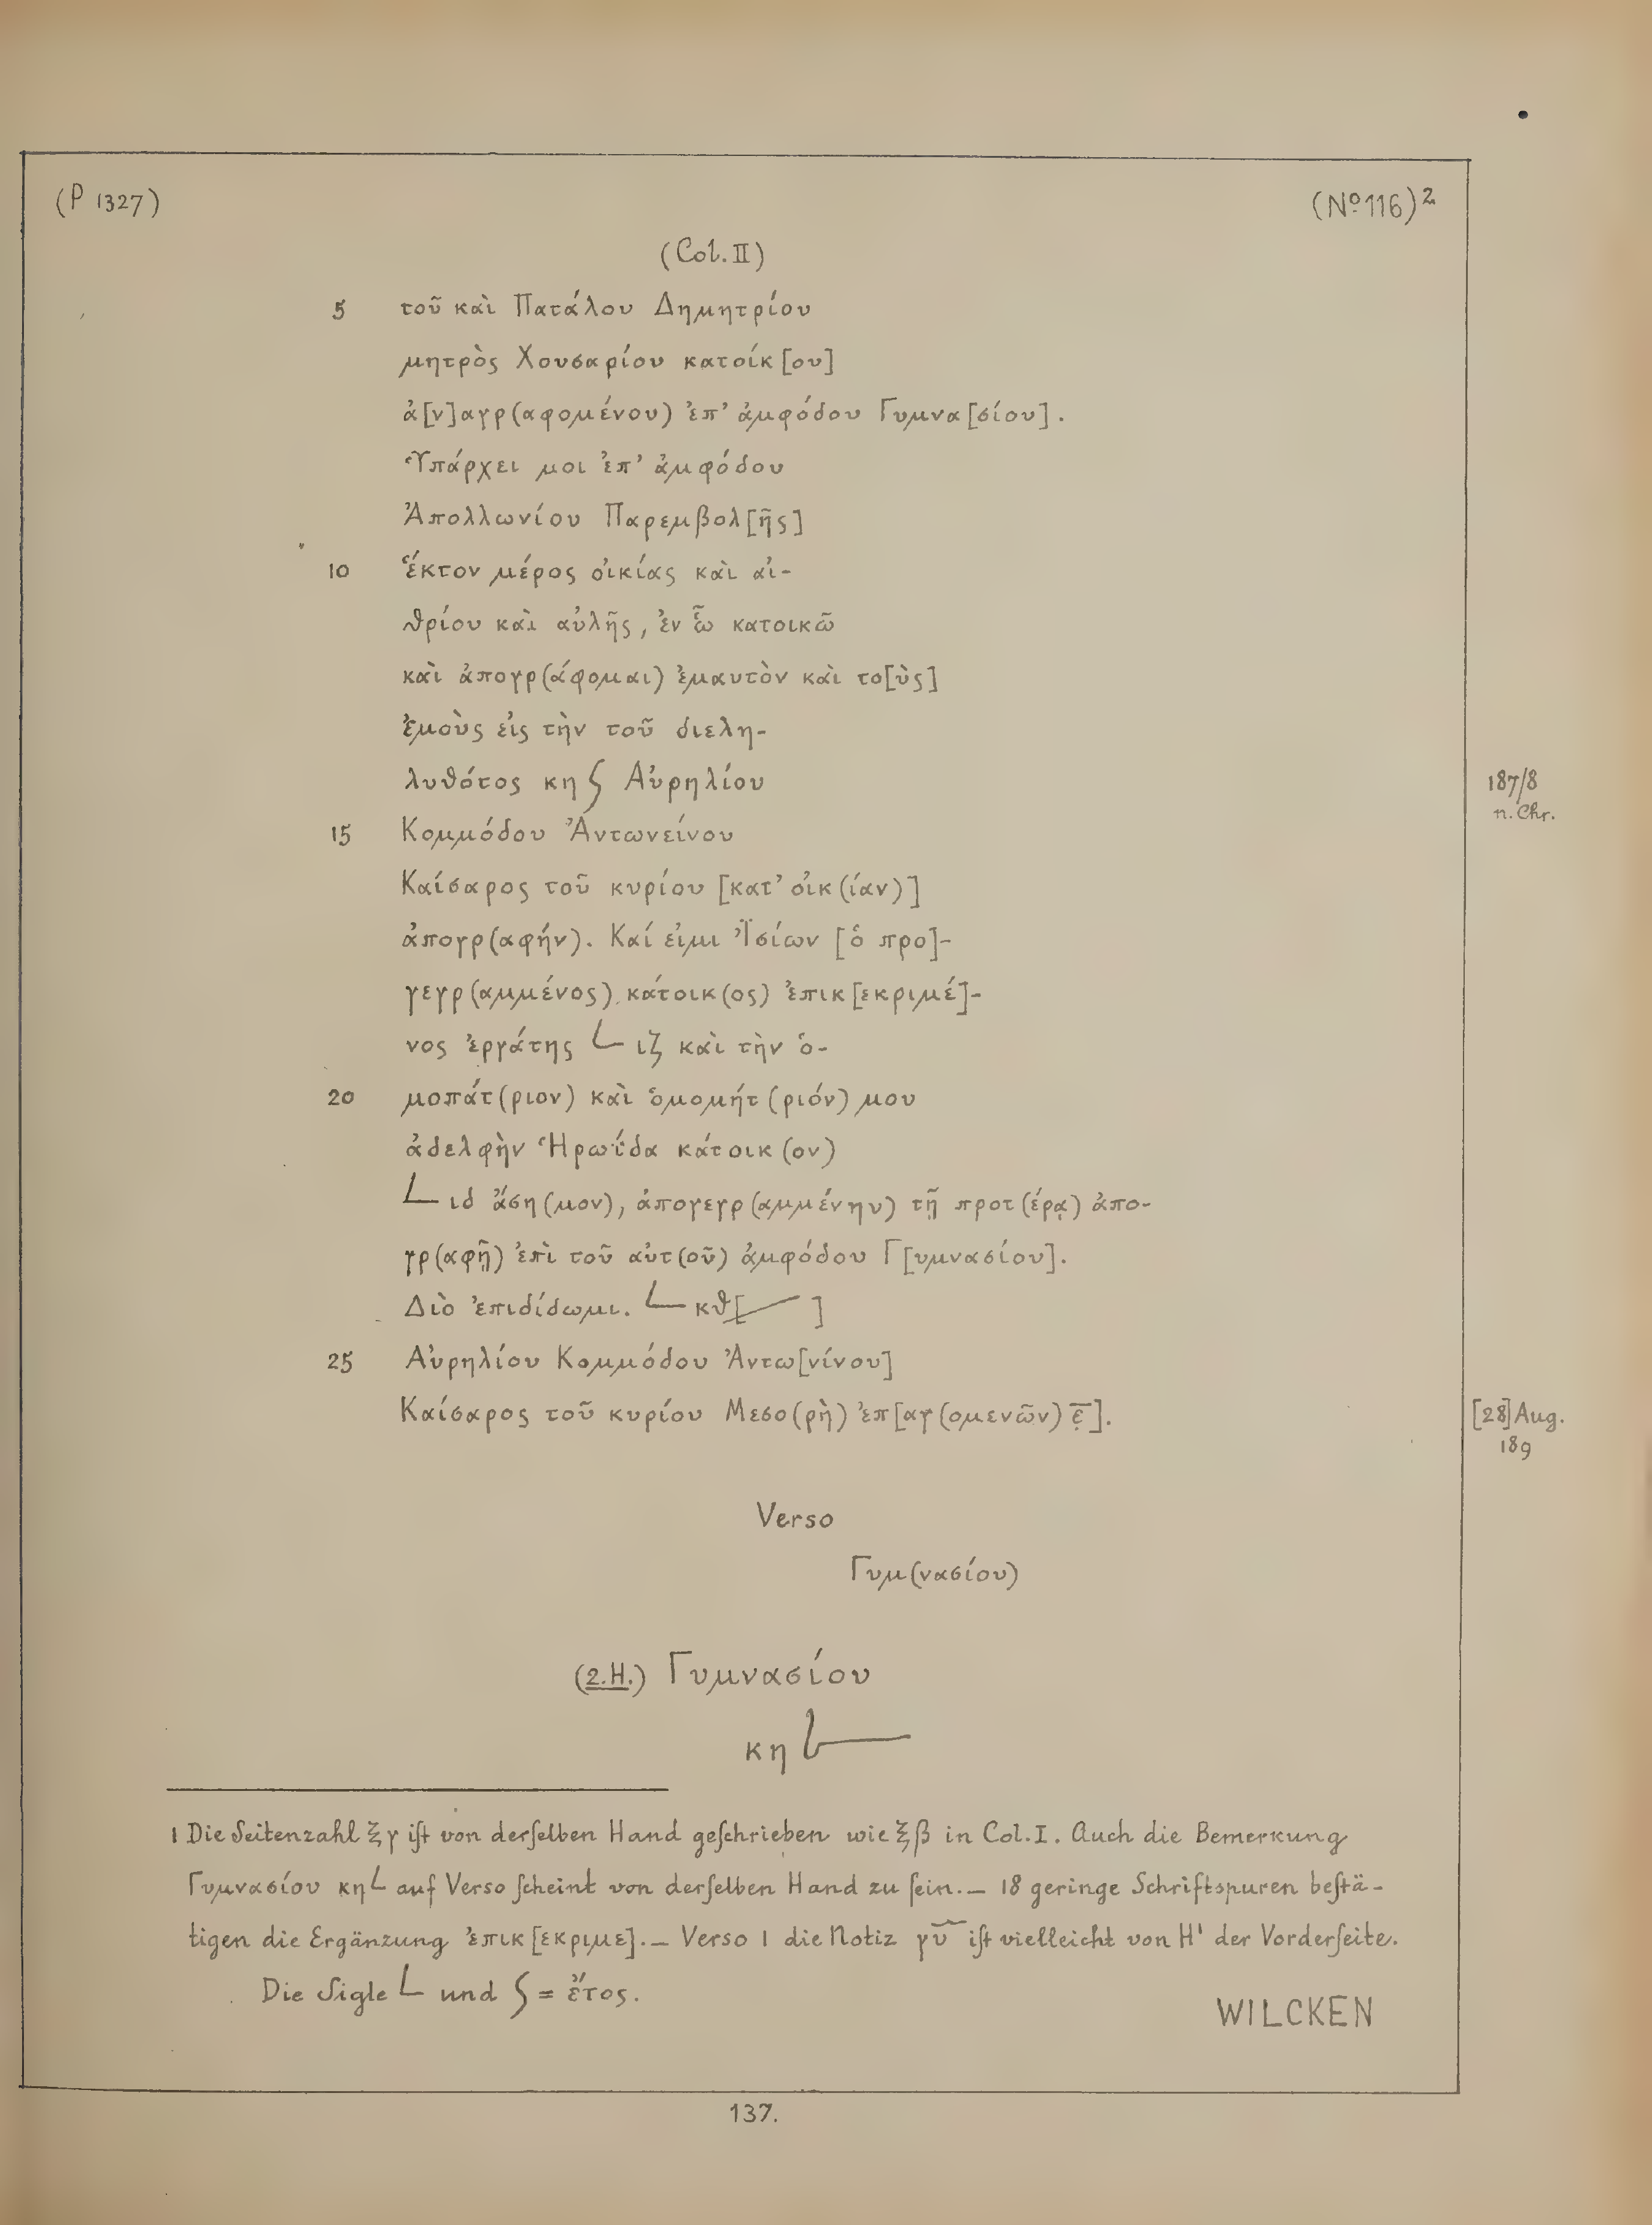 (P 1327)
(No. 116)²
(Col. II)
5 τοῦ καὶ Πατάλου Δημητρίου
μητρὸς Χουσαρίου κατοίκ[ου]
ἀ[ν]αγρ(αφομένου) ἐπ’ ἀμφόδου Γυμνα[σίου].
Ὑπάρχει μοι ἐπ’ ἀμφόδου
Ἀπολλωνίου Παρεμβολ[ῆς]
10 ἕκτον μέρος οἰκίας καὶ αἰ-
θρίου καὶ αὐλῆς, ἐν ᾧ κατοικῶ
καὶ ἀπογρ(άφομαι) ἐμαυτὸν καὶ το[ὺς]
ἐμοὺς εἰς τὴν τοῦ διελη-
λυθότος κη ʃ Αὐρηλίου
187/8
n. Chr.
15 Κομμόδου Ἀντωνείνου
Καίσαρος τοῦ κυρίου [κατ’ οἰκ(ίαν)]
ἀπογρ(αφήν). Καί εἰμι Ἰσίων [ὁ προ]-
γεγρ(αμμένος) κάτοικ(ος) ἐπικ[εκριμέ]-
νος ἐργάτης L ιζ καὶ τὴν ὁ-
20 μοπάτ(ριον) καὶ ὁμομήτ(ριόν) μου
ἀδελφὴν Ἡρωΐδα κάτοικ(ον)
L ιδ ἄση(μον), ἀπογεγρ(αμμένην) τῇ προτ(έρᾳ) ἀπο-
γρ(αφῇ) ἐπὶ τοῦ αὐτ(οῦ) ἀμφόδου Γ[υμνασίου].
Διὸ ἐπιδίδωμι. L κθ[ ]
25 Αὐρηλίου Κομμόδου Ἀντω[νίνου]
Καίσαρος τοῦ κυρίου Μεσο(ρὴ) ἐπ[αγ(ομενῶν) ε̣̅].
[28] Aug.
189
Verso
Γυμ(νασίου)
(2.H.) Γυμνασίου
κη L
1 Die Seitenzahl ξγ iſt von derſelben Hand geſchrieben wie ξβ in Col. I. Auch die Bemerkung
Γυμνασίου κη L auf Verso ſcheint von derſelben Hand zu ſein. — 18 geringe Schriftspuren beſtä-
tigen die Ergänzung ἐπικ[εκριμε]. — Verso 1 die Notiz γυ̅ iſt vielleicht von H¹ der Vorderſeite.
Die Sigle L und ʃ = ἔτος.
WILCKEN
137.